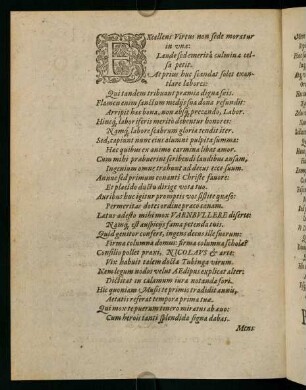 EXcellens Virtus non sede moratur
in vna:
Laude sed emeritâ culmina celsa petit.
At prius huc scandat solet exantlare labores:
Qui tandem tribuunt præmia digna suis.
Arripit hæc bona, non absq; prehendo, Labor.
Namq; labore scabrum gloria tendit iter.
Sed, sapiunt nunc eius alumni pulpita summa:
Hæc quibus ex animo carmina libat amor.
Cum mihi præbuerint scribendi laudibus ansam,
Ingenium omne trahunt ad decus ecce suum.
Annue sed primùm conanti Christe fauore:
Et placido ductu dirige vota tuo.
Auribus huc igitur promptis vos sistite quæso:
Permeritas dotes ordine præco canam.
Latus adesto mihi mox VARNBVLLERE diserte:
Quid genitor confert, ingens decus ille suorum:
Firma columna domus: firma columna scholæ?
Consilio pollet præsti, NICOLAVS & arte:
Vix habuit talem docta Tubinga virum.
Nemo legum nodos velut ÆDipus explicat alter:
Dictitat in calamum iura notanda fori.
Hic quoniam Musis te primis tradidit annis,
Ætati referat tempora prima tuæ.
Qui mox te puerum tenero miratus ab æuo:
Cum herois tanti splendida signa dabas.
Mens